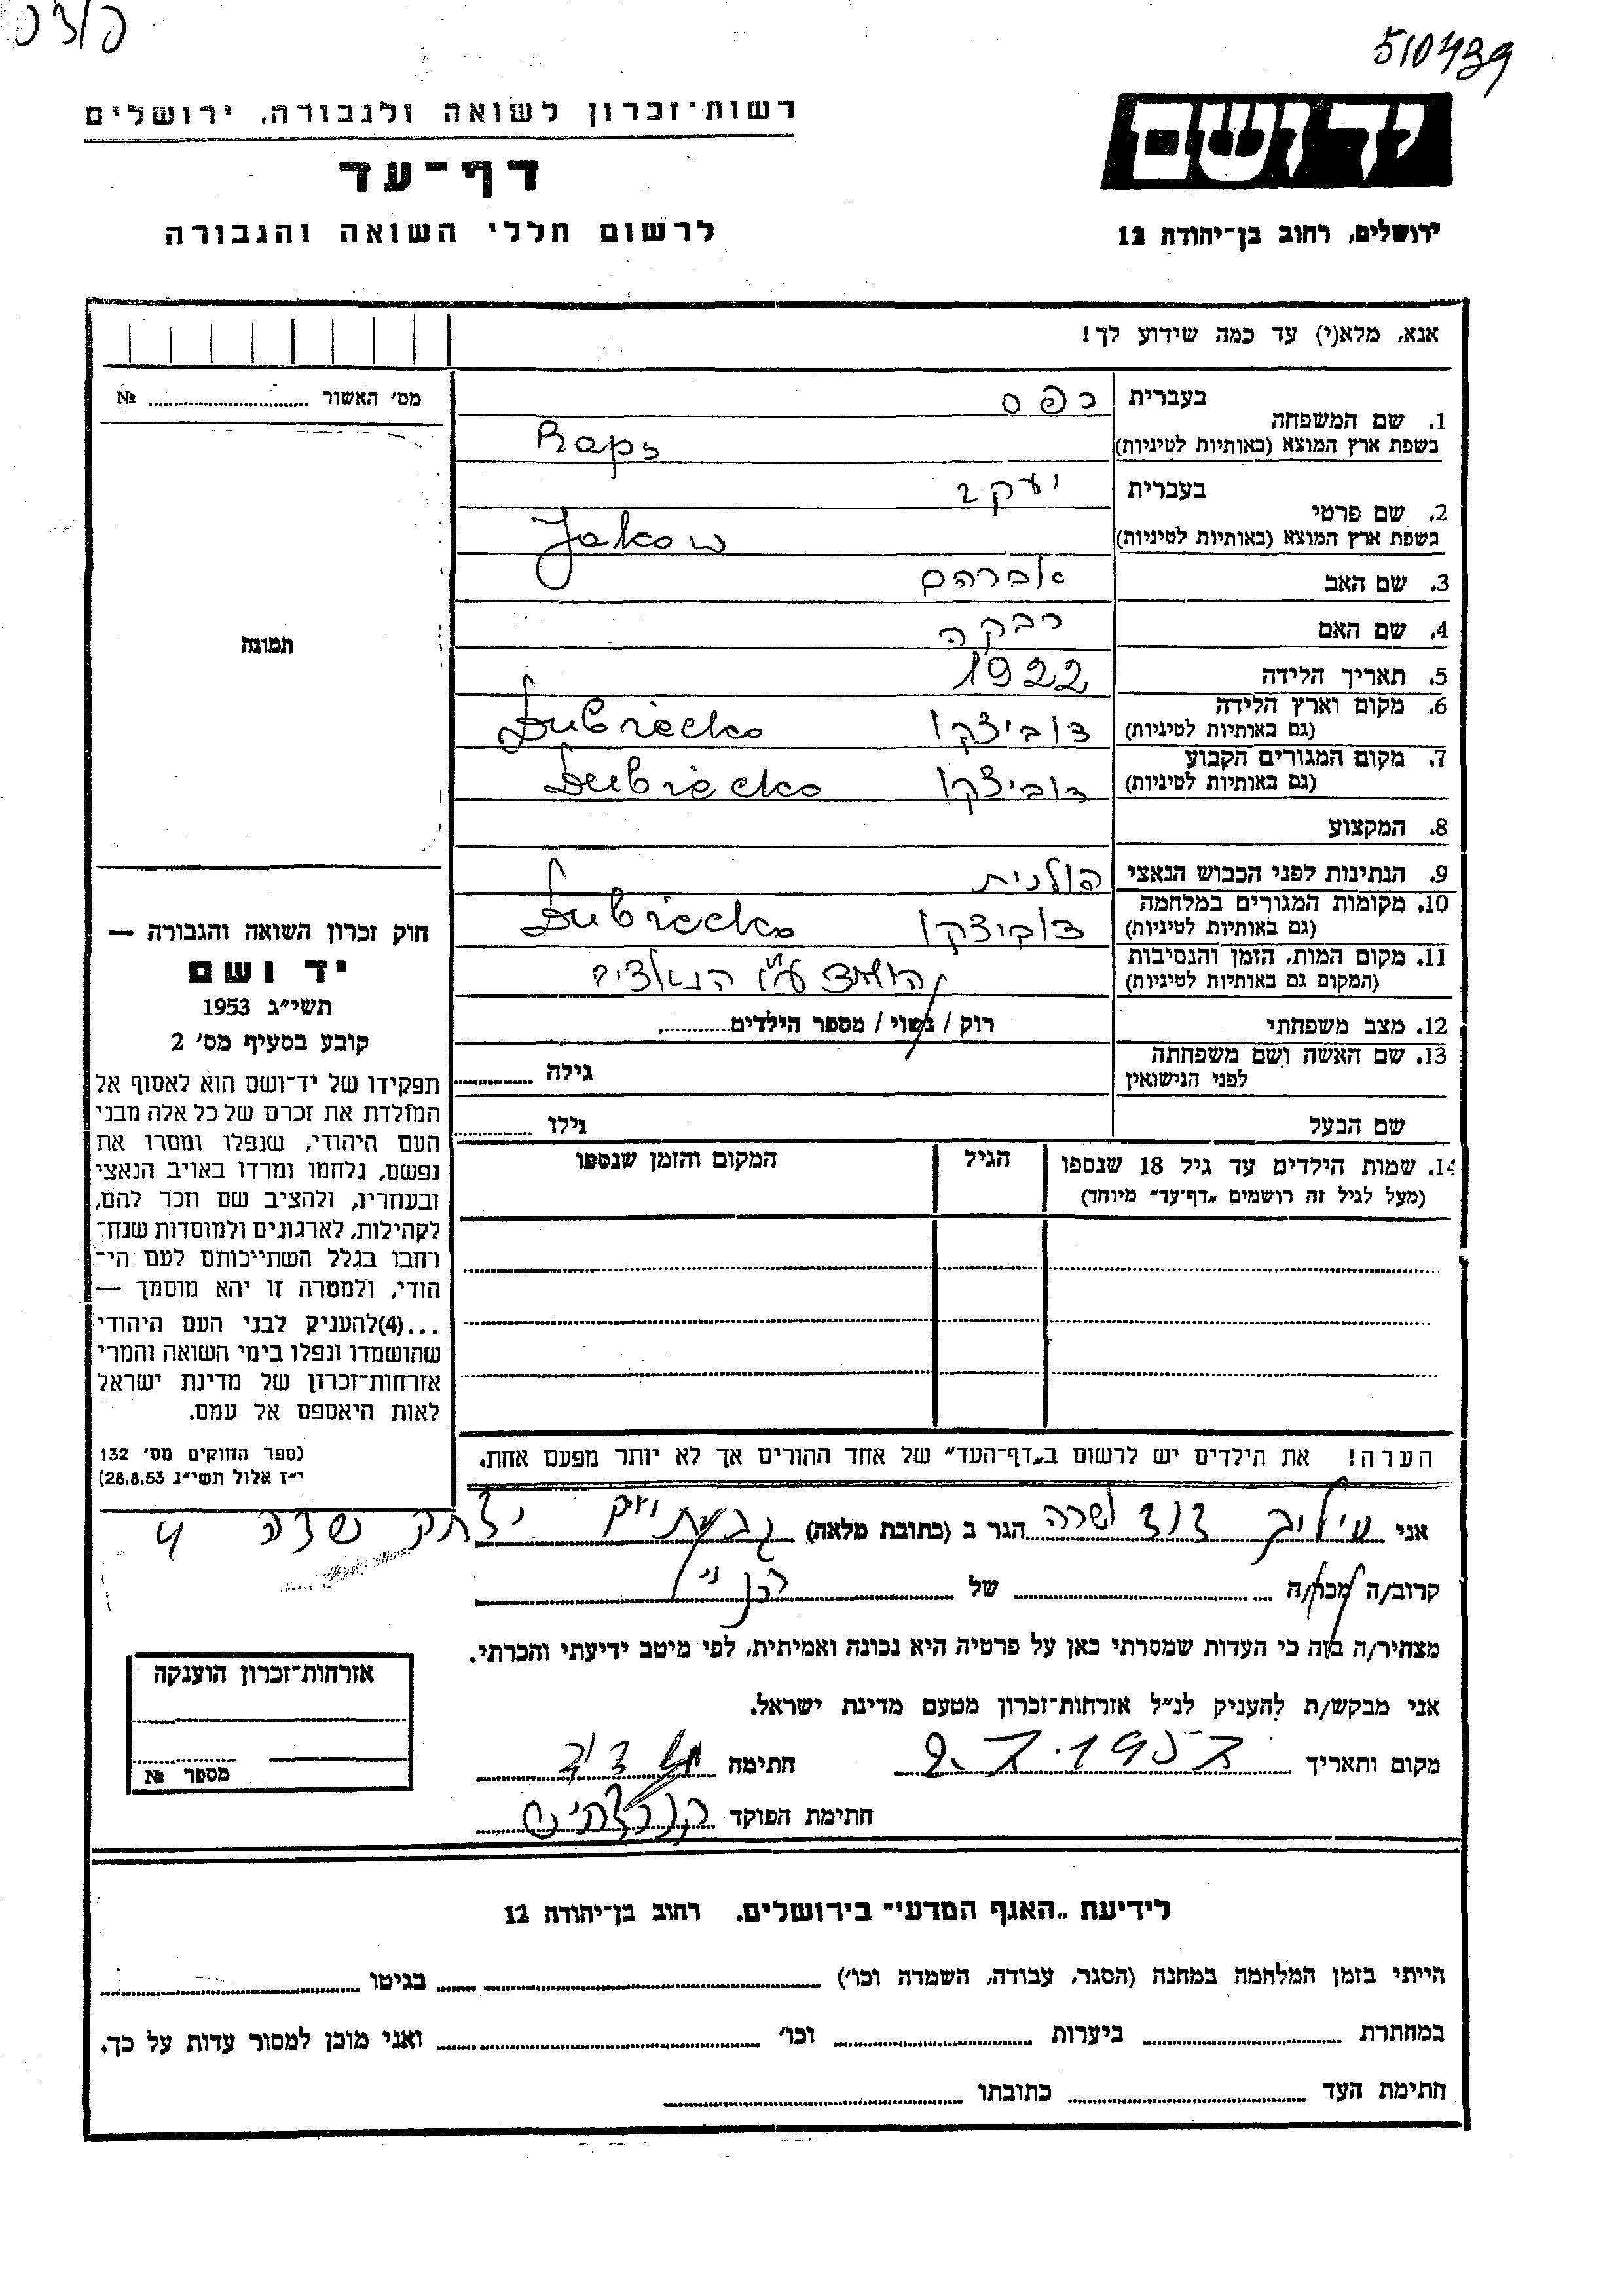 510439
רשות־זכרון לשואה ולגבורה, ירושלים
ידושם
דף־עד
לרשום חללי השואה והגבורה
ירושלים, רחוב בן־יהודה 12
אנא, מלא(י) עד כמה שידוע לך!
מס' האשור № 
1. שם המשפחה
בעברית רפס
בשפת ארץ המוצא (באותיות לטיניות) Raps
2. שם פרטי
בעברית יעקב
בשפת ארץ המוצא (באותיות לטיניות) Jakow
3. שם האב אברהם
4. שם האם רבקה
תמונה
5. תאריך הלידה 1922
6. מקום וארץ הלידה דוביצקו Dubiecko
(גם באותיות לטיניות)
7. מקום המגורים הקבוע דוביצקו Dubiecko
(גם באותיות לטיניות)
8. המקצוע
9. הנתינות לפני הכבוש הנאצי פולנית
10. מקומות המגורים במלחמה דוביצקו Dubiecko
(גם באותיות לטיניות)
11. מקום המות, הזמן והנסיבות
(המקום גם באותיות לטיניות) הושמד ע"י הנאצים
12. מצב משפחתי רוק / נשוי / מספר הילדים
13. שם האשה ושם משפחתה
לפני הנישואין גילה
שם הבעל גילו
14. שמות הילדים עד גיל 18 שנספו הגיל המקום והזמן שנספו
(מעל לגיל זה רושמים "דף־עד" מיוחד)
הערה! את הילדים יש לרשום ב"דף־העד" של אחד ההורים אך לא יותר מפעם אחת.
חוק זכרון השואה והגבורה —
יד ושם
תשי״ג 1953
קובע בסעיף מס' 2
תפקידו של יד־ושם הוא לאסוף אל
המולדת את זכרם של כל אלה מבני
העם היהודי, שנפלו ומסרו את
נפשם, נלחמו ומרדו באויב הנאצי
ובעוזריו, ולהציב שם וזכר להם,
לקהילות, לארגונים ולמוסדות שנח־
רחבו בגלל השתייכותם לעם הי־
הודי, ולמטרה זו יהא מוסמך —
...(4)להעניק לבני העם היהודי
שהושמדו ונפלו בימי השואה והמרי
אזרחות־זכרון של מדינת ישראל
לאות היאספם אל עמם.
(ספר החוקים מס' 132
י״ז אלול תשי״ג 28.8.53)
אני דוד ושרה הגר ב (כתובת מלאה) יצחק שדה 4
קרוב/ה מכר/ה של
מצהיר/ה בזה כי העדות שמסרתי כאן על פרטיה היא נכונה ואמיתית, לפי מיטב ידיעתי והכרתי.
אני מבקש/ת להעניק לנ״ל אזרחות־זכרון מטעם מדינת ישראל.
מקום ותאריך 2.7.1957 חתימה
חתימת הפוקד
אזרחות־זכרון הוענקה
מספר №
לידיעת "האגף המדעי" בירושלים. רחוב בן־יהודה 12
הייתי בזמן המלחמה במחנה (הסגר, עבודה, השמדה וכו') בגיטו
במחתרת ביערות וכו' ואני מוכן למסור עדות על כך.
חתימת העד כתובתו